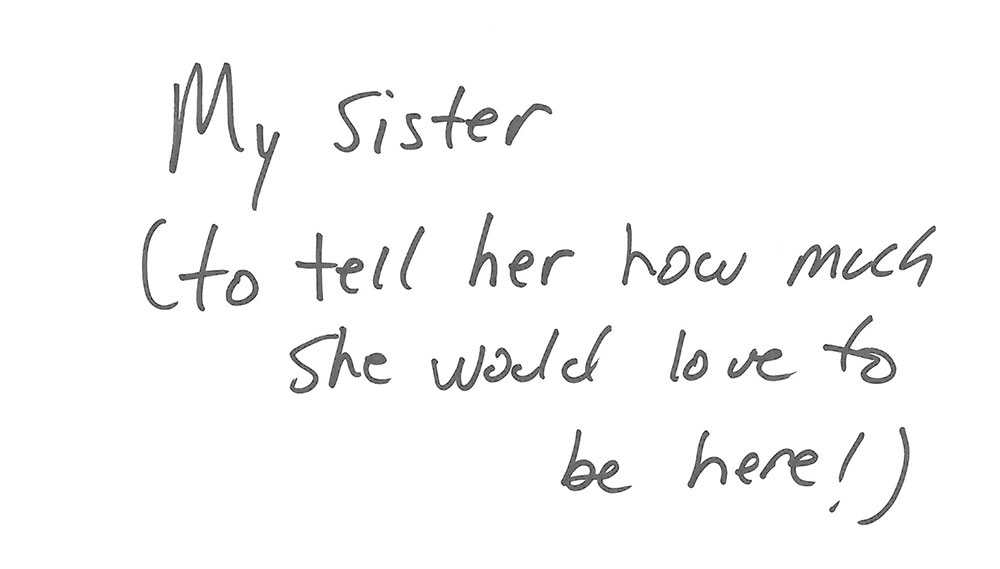 My sister
(to tell her how much
she would love to
be here!)